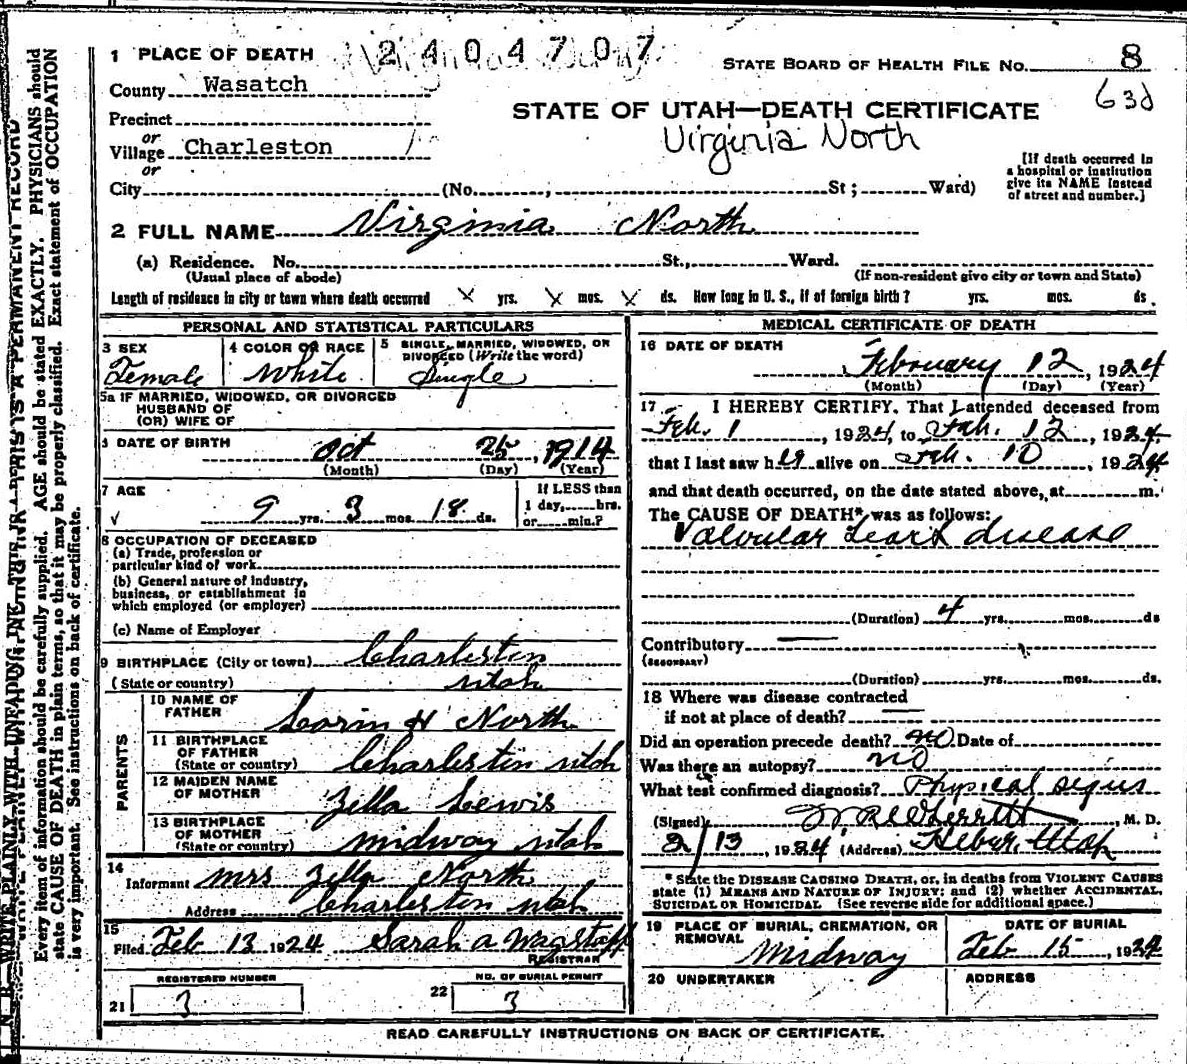 1 PLACE OF DEATH 2404707
STATE BOARD OF HEALTH FILE NO. 8
County Wasatch
63d
STATE OF UTAH—DEATH CERTIFICATE
Precinct
Virginia North
or
Village Charleston
or
[If death occurred in
a hospital or institution
give its NAME instead
of street and number.]
City (No. , St; Ward)
2 FULL NAME Virginia North
(a) Residence. No. St., Ward.
(Usual place of abode) (If non-resident give city or town and State)
Length of residence in city or town where death occurred X yrs. X mos. X ds. How long in U. S., if of foreign birth? yrs. mos. ds.
PERSONAL AND STATISTICAL PARTICULARS
3 SEX 4 COLOR OR RACE 5 SINGLE, MARRIED, WIDOWED, OR
DIVORCED (Write the word)
Female White Single
5a IF MARRIED, WIDOWED, OR DIVORCED
HUSBAND OF
(OR) WIFE OF
DATE OF BIRTH Oct 25, 1914
(Month) (Day) (Year)
7 AGE If LESS than
1 day, hrs.
or min.?
9 yrs. 3 mos. 18 ds.
8 OCCUPATION OF DECEASED
(a) Trade, profession or
particular kind of work
(b) General nature of industry,
business, or establishment in
which employed (or employer)
(c) Name of Employer
9 BIRTHPLACE (City or town) Charleston
(State or country) Utah
PARENTS
10 NAME OF
FATHER Lorin H North
11 BIRTHPLACE
OF FATHER
(State or country) Charleston Utah
12 MAIDEN NAME
OF MOTHER Zella Lewis
13 BIRTHPLACE
OF MOTHER
(State or country) Midway Utah
14
Informant Mrs Zella North
Address Charleston Utah
15
Filed Feb 13 1924 Sarah A Wagstaff
REGISTRAR
REGISTERED NUMBER NO. OF BURIAL PERMIT
21 3 22 3
MEDICAL CERTIFICATE OF DEATH
16 DATE OF DEATH
February 12, 1924
(Month) (Day) (Year)
17 I HEREBY CERTIFY, That I attended deceased from
Feb. 1, 1924, to Feb. 12, 1924,
that I last saw her alive on Feb. 10, 1924
and that death occurred, on the date stated above, at m.
The CAUSE OF DEATH* was as follows:
Valvular Heart disease
(Duration) 4 yrs. mos. ds
Contributory
(SECONDARY)
(Duration) yrs. mos. ds.
18 Where was disease contracted
if not at place of death?
Did an operation precede death? no Date of
Was there an autopsy? no
What test confirmed diagnosis? Physical signs
(Signed) , M. D.
2/13, 1924 (Address) Heber, Utah
* State the DISEASE CAUSING DEATH, or, in deaths from VIOLENT CAUSES
state (1) MEANS AND NATURE OF INJURY; and (2) whether ACCIDENTAL,
SUICIDAL OR HOMICIDAL (See reverse side for additional space.)
19 PLACE OF BURIAL, CREMATION, OR
REMOVAL
Midway
DATE OF BURIAL
Feb 15, 1924
20 UNDERTAKER ADDRESS
READ CAREFULLY INSTRUCTIONS ON BACK OF CERTIFICATE.
N. B. WRITE PLAINLY WITH UNFADING INK THIS IS A PERMANENT RECORD
Every item of information should be carefully supplied. AGE should be stated EXACTLY. PHYSICIANS should
state CAUSE OF DEATH in plain terms, so that it may be properly classified. Exact statement of OCCUPATION
is very important. See instructions on back of certificate.